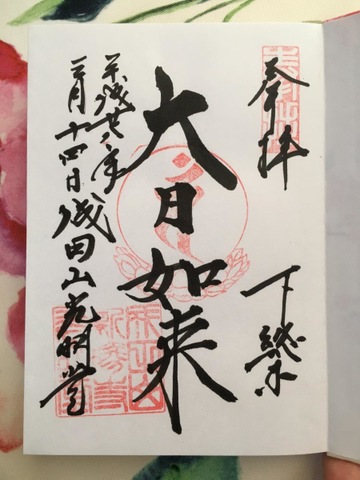 奉拝
下総
大日如来
平成廿八年
三月十四日 成田山光明堂